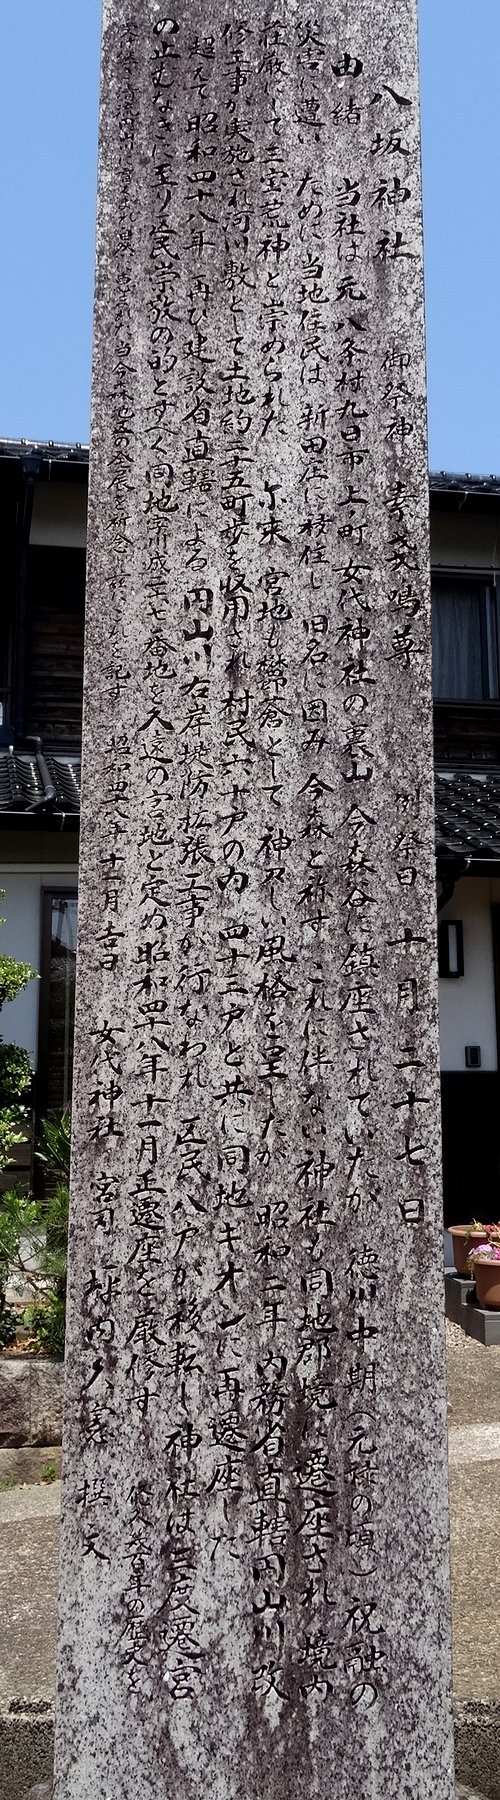 八坂神社 御祭神 素戔嗚尊 例祭日 十月二十七日
由緒 当社は元八条村九日市上ノ町女代神社の裏山今森谷に鎮座されていたが 徳川中期(元禄の頃)祝融の
災害に遭い ために当地住民は新田庄に移住し旧名に因み今森と称す これに伴ない神社も同地郡境に遷座され境内
荘厳にして三宝荒神と崇められた 尓来宮地も欝蒼として神々しい風格を呈したが 昭和二年内務省直轄円山川改
修工事が実施され河川敷として土地約二十五町歩を収用され村民六十戸の内四十三戸と共に同地ギオンに再遷座した
超えて昭和四十八年再び建設省直轄による円山川右岸堤防拡張工事が行なわれ 区民八戸が移転し神社は三度遷宮
の止むなきに至り区民崇敬の的とすべく同地字川成三七番地を久遠の宮地と定め昭和四十八年十一月正遷座を厳修す 悠久六百年の歴史を
当今森地区の発展を祈念し 記す 昭和四十八年十一月吉日 女代神社 宮司 撰文